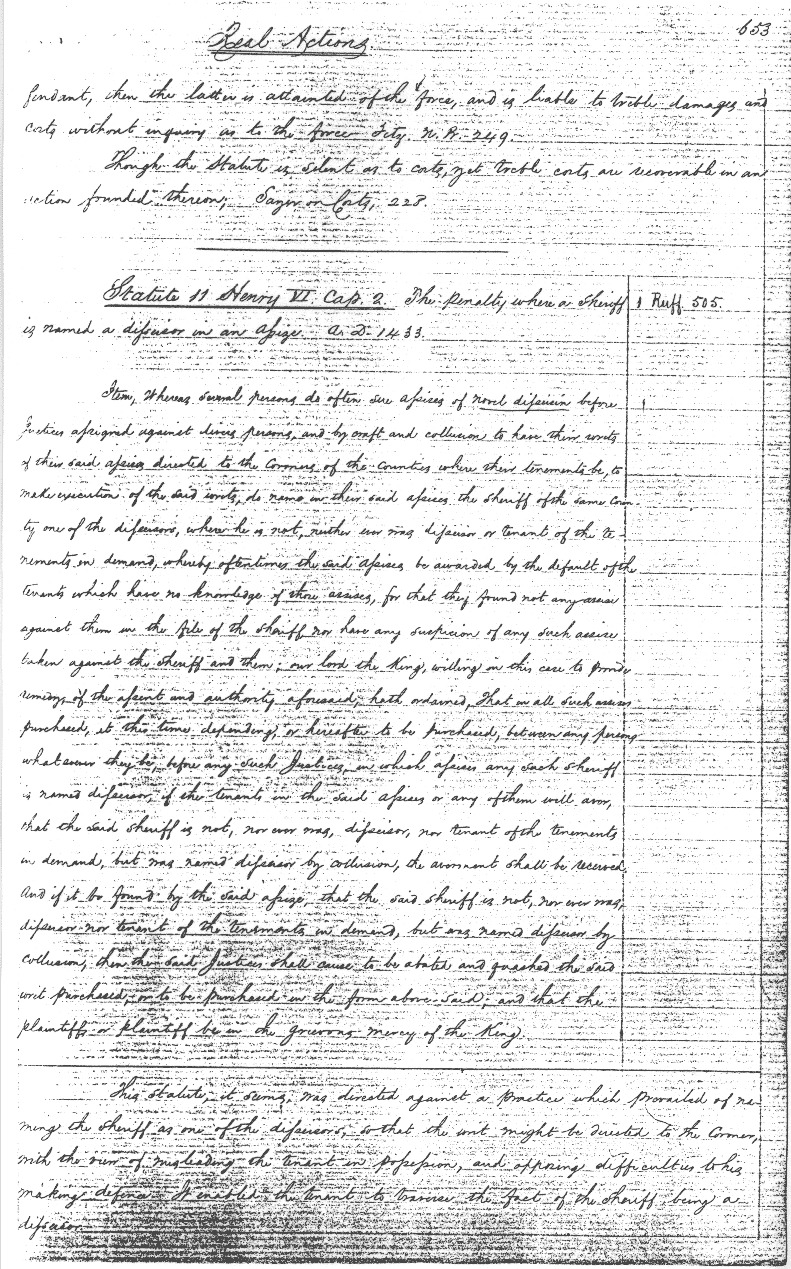 653
Real Actions
fendant, then the latter is attainted of the force, and is liable to treble damages and
costs without inquiry as to the force Fitz. N. B. 249.
Though the Statute is silent as to costs, yet treble costs are recoverable in an
action founded thereon; Sayer on Costs, 228.
Statute 11 Henry VI. Cap. 2. The penalty where a Sheriff
1 Ruff. 505.
is named a disseisor in an Assize. A.D. 1433.
Item, Whereas several persons do often sue assises of novel disseisin before
Justices assigned against divers persons, and by craft and collusion to have their writs
of their said assises directed to the Coroners of the counties where their tenements be, to
make execution of the said writs, do name in their said assises the Sheriff of the same Coun-
ty one of the disseisors, where he is not, neither ever was disseisor or tenant of the te-
nements in demand, whereby oftentimes the said assises be awarded by the default of the
tenants which have no knowledge of those assises, for that they found not any assise
against them in the file of the Sheriff nor have any suspicion of any such assise
taken against the Sheriff and them; our lord the King, willing in this case to provide
remedy, of the assent and authority aforesaid, hath ordained, That in all such assises
purchased, at this time depending, or hereafter to be purchased, between any persons
whatsoever they be, before any such Justices, in which assises any such Sheriff
is named disseisor, if the tenants in the said assises or any of them will aver,
that the said Sheriff is not, nor ever was, disseisor, nor tenant of the tenements
in demand, but was named disseisor by collusion, the averment shall be received,
And if it be found by the said assize, that the said Sheriff is not, nor ever was,
disseisor nor tenant of the tenements in demand, but was named disseisor by
collusion, then the said Justices shall cause to be abated and quashed the said
writ purchased, or to be purchased in the form above said; and that the
plaintiffs or plaintiff be in the grievous mercy of the King.
This statute, it seems, was directed against a practice which prevailed of na-
ming the Sheriff as one of the disseisors, so that the writ might be directed to the Coroner,
with the view of misleading the tenant in possession, and opposing difficulties to his
making defense. It enabled the tenant to traverse the fact of the Sheriff, being a
disseisor.